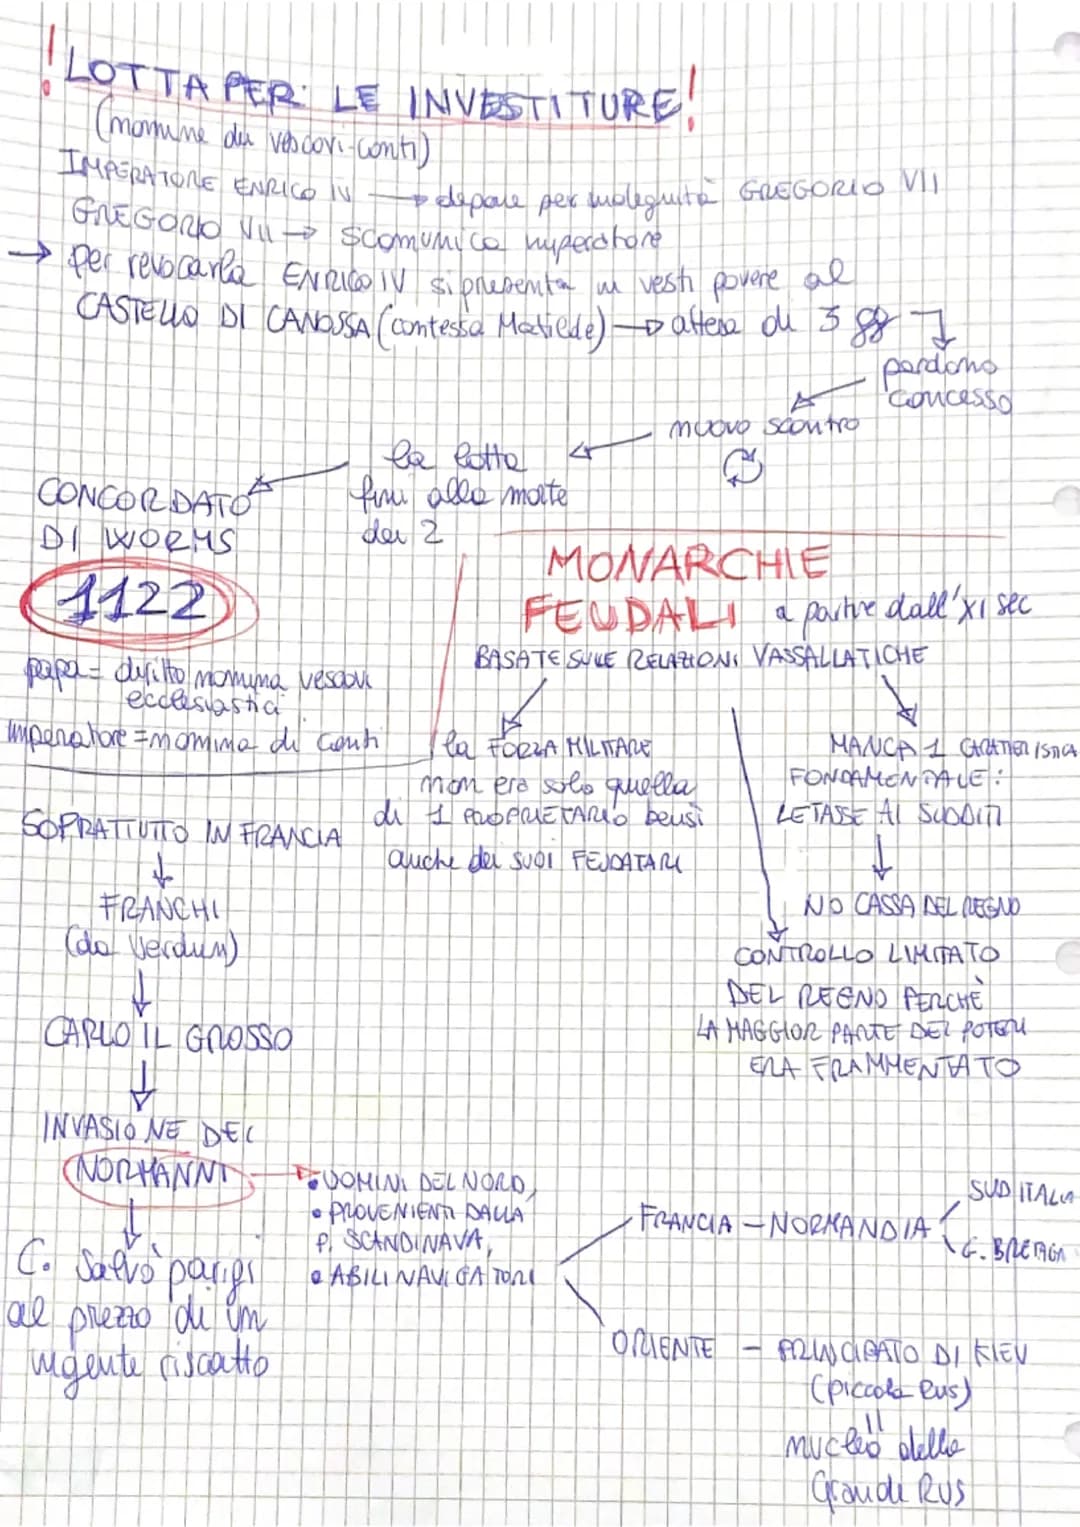 ! LOTTA PER LE INVESTITURE!
(nomine dei vescovi-conti)
IMPERATORE ENRICO IV → depone per indegnità GREGORIO VII
GREGORIO VII → scomunica imperatore
→ per revocarla ENRICO IV si presenta in vesti povere al
CASTELLO DI CANOSSA (contessa Matilede) → attesa di 3 gg
perdono
concesso
nuovo scontro
la lotta
finì alla morte
dei 2
CONCORDATO
DI WORMS
1122
papa = diritto nomina vescovi
ecclesiastici
imperatore = nomina di conti
MONARCHIE
FEUDALI a partire dall'XI sec
BASATE SULLE RELAZIONI VASSALLATICHE
la FORZA MILITARE
non era solo quella
di 1 PROPRIETARIO bensì
anche dei SUOI FEUDATARI
MANCA 1 CARATTERISTICA
FONDAMENTALE:
LE TASSE AI SUDDITI
↓
NO CASSA DEL REGNO
CONTROLLO LIMITATO
DEL REGNO PERCHÈ
LA MAGGIOR PARTE DEI POTERI
ERA FRAMMENTATO
SOPRATTUTTO IN FRANCIA
↓
FRANCHI
(da Verdun)
↓
CARLO IL GROSSO
↓
INVASIONE DEI
NORMANNI
↓
C. salvò parigi
al prezzo di un
ingente riscatto
• UOMINI DEL NORD,
• PROVENIENTI DALLA
P. SCANDINAVA,
• ABILI NAVIGATORI
FRANCIA - NORMANDIA
SUD ITALIA
G. BRETAGA
ORIENTE - PRINCIPATO DI KIEV
(piccola Rus)
=
nucleo della
Grande RUS